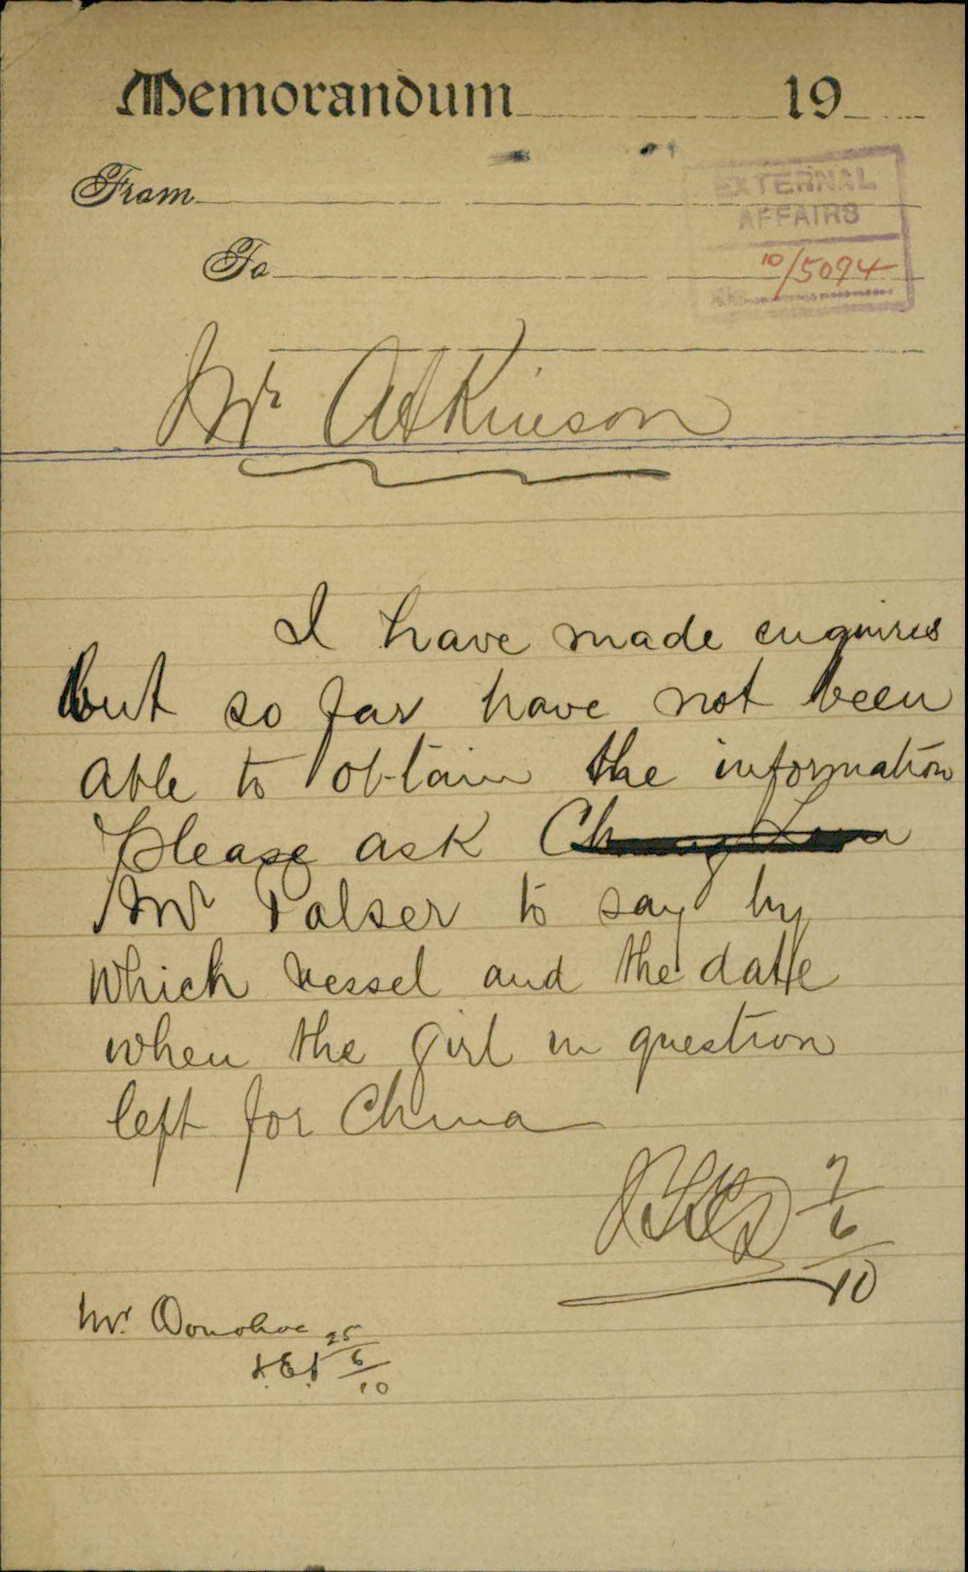 Memorandum 19
From
To
EXTERNAL
AFFAIRS
10/5094
Mr Atkinson
I have made enquiries
but so far have not been
able to obtain the information
Please ask
Mr Palser to say by
which vessel and the date
when the girl in question
left for China
7/6/10
Mr. Donohoe 25/6/10